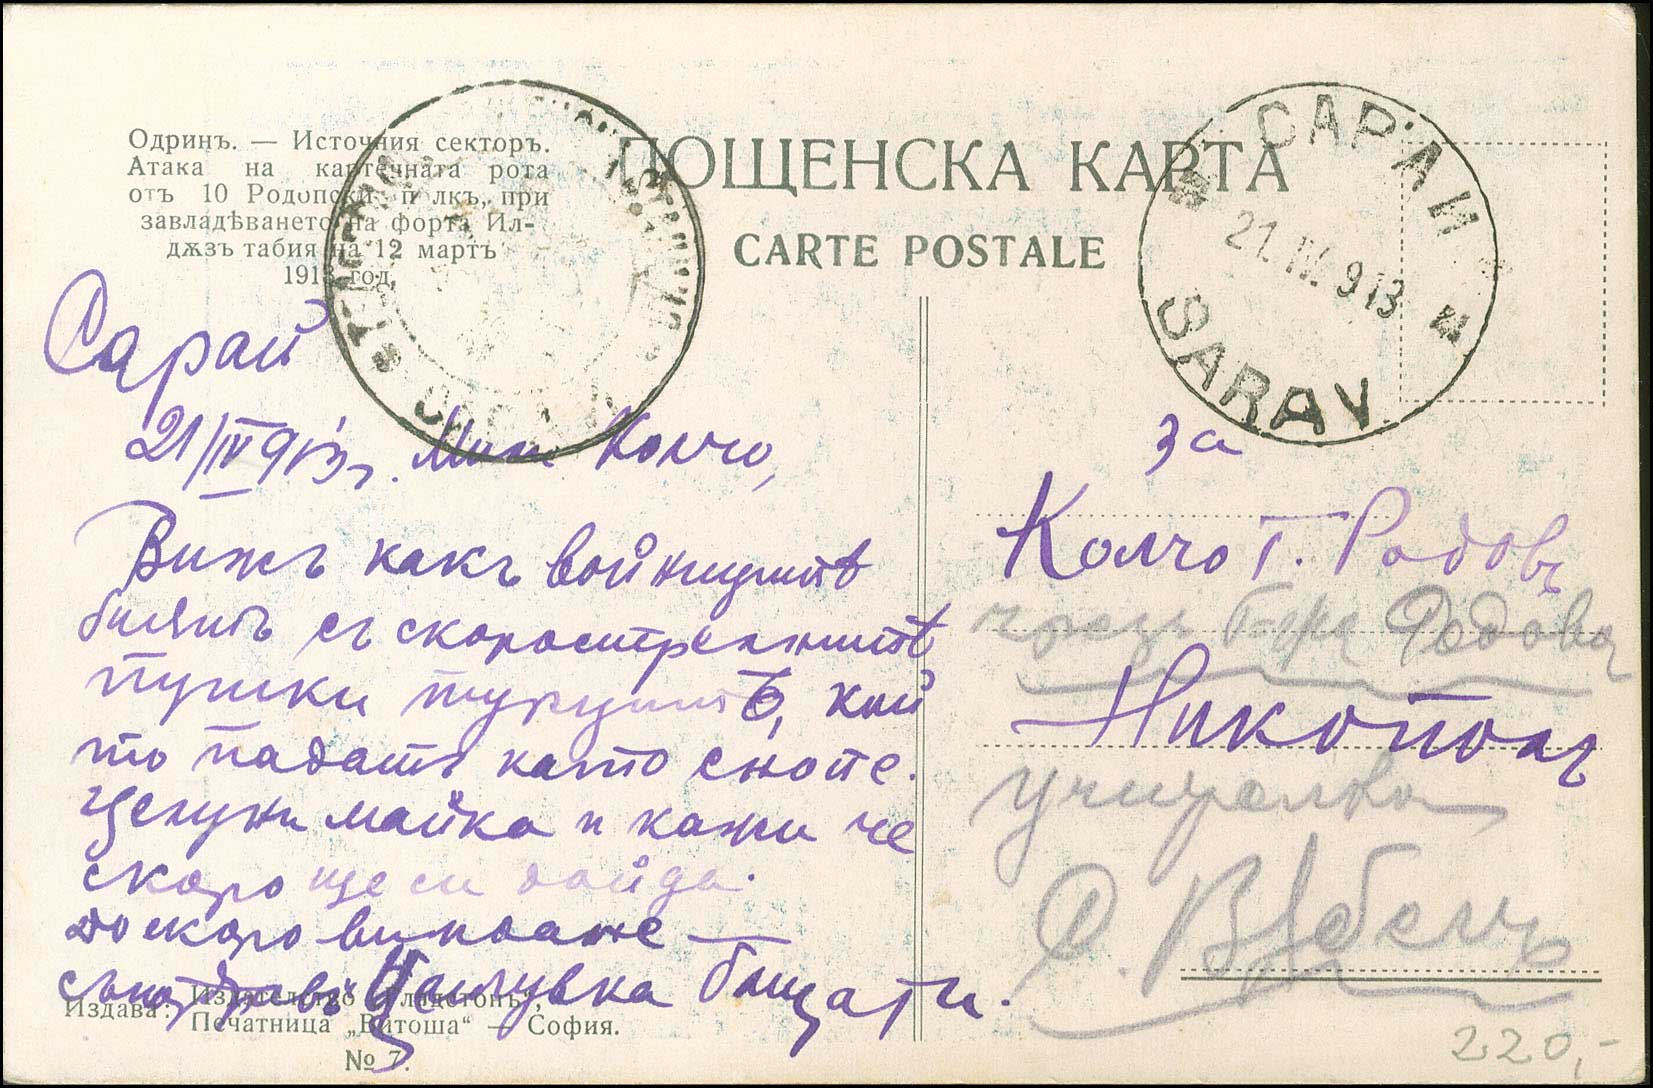 Одринъ. — Источния секторъ.
Атака на картечната рота
отъ 10 Родопски полкъ, при
завладѣването на форта Ил-
дѫзъ табия на 12 мартъ
1913 год.
ПОЩЕНСКА КАРТА
CARTE POSTALE
САРАЙ
21.IV.913
SARAY
Сарай
21/IV 913 г. Мили Колчо,
Вижъ какъ войницитѣ
биятъ съ скорострелнитѣ
пушки турцитѣ, кои
то падатъ като снопе.
Целуни майка и кажи че
скоро ще си дойда.
До скоро виждане —
Целувка баща ти.
за
Колчо Г. Радовъ
чрезъ
Никополъ
Издава: Издателство „Гладстонъ“,
Печатница „Витоша“ — София.
№ 7.
220,-